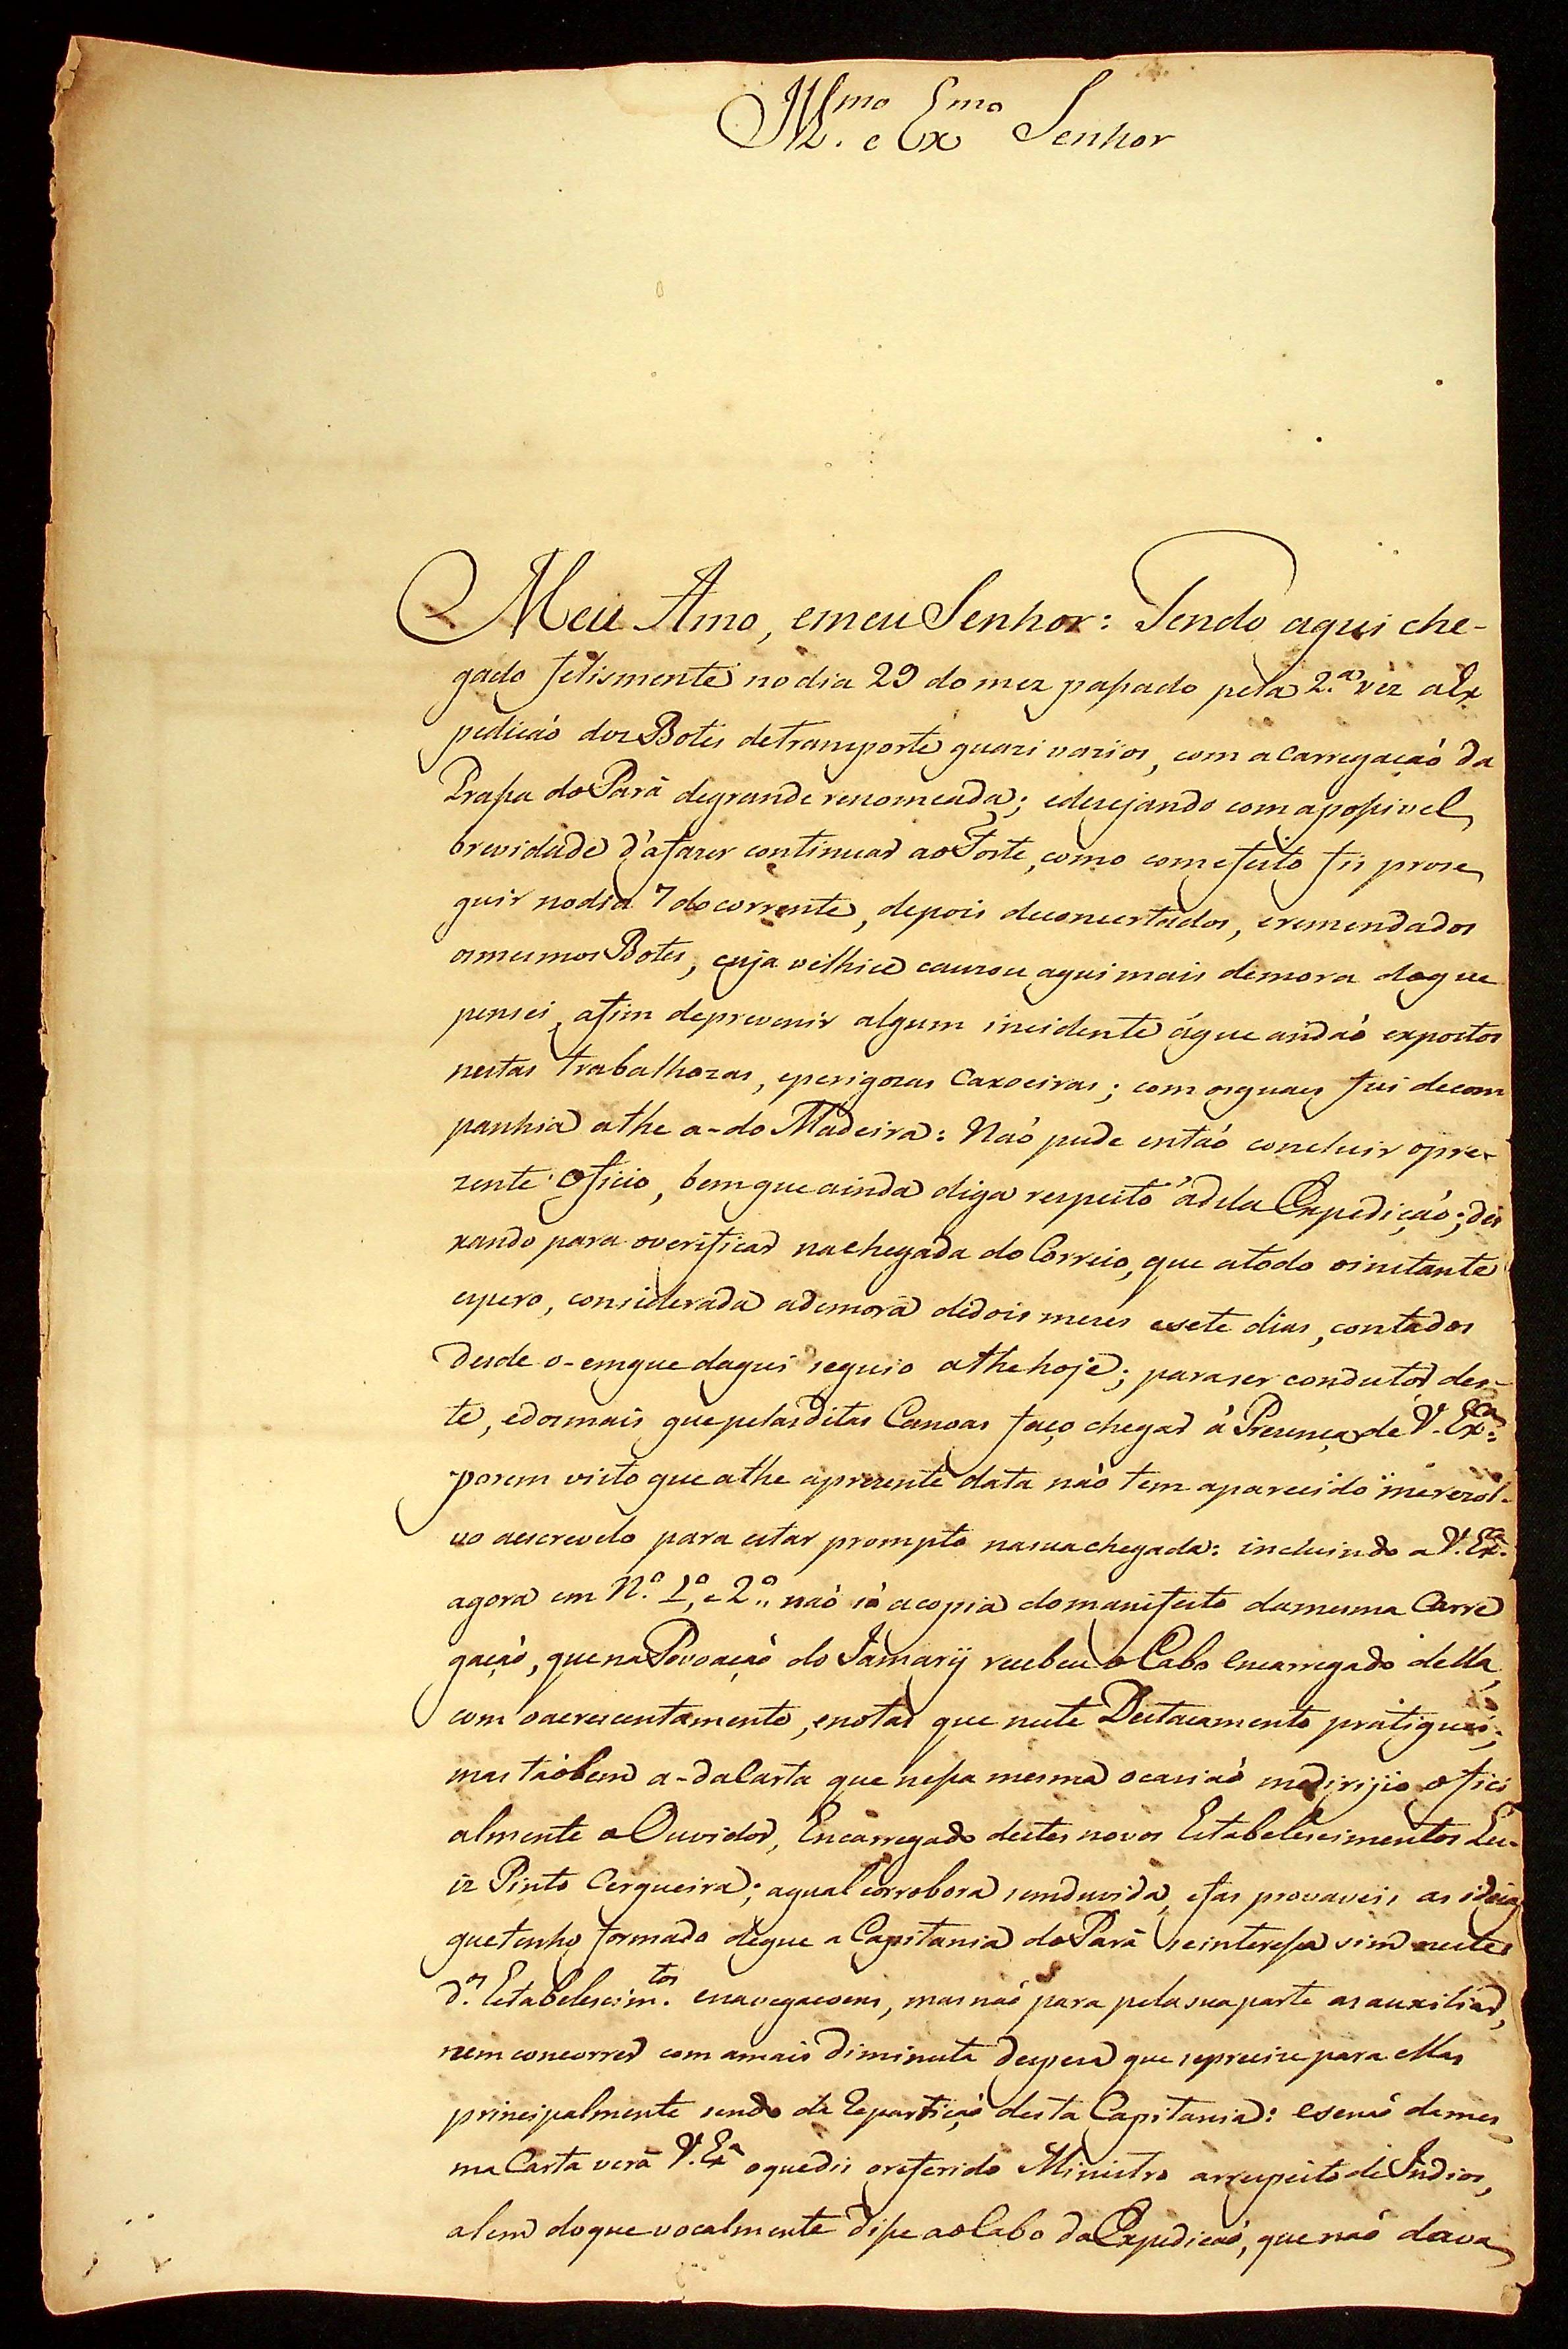 Ill.mo e Ex.mo Senhor
Meu Amo, emeu Senhor: Tendo aqui che-
gado felismente no dia 29 do mez passado pela 2.ª vez a Ex
pedicáo dos Botes detransporte quazi vazios, com a carregaçaó da
Prassa do Pará degrande renomeada; edezejando com apossivel
brevidade d'afazer continuar ao Forte, como comefeito fis prose
guir nodia 7 docorrente, depois deconcertados, eremendados
osmesmos Botes, cuja velhice cauzou aqui mais demora doque
pensei, afim deprevenir algum incidente áque andaó expostos
nestas trabalhozas, eperigozas Caxoeiras; com osquaes fui decom
panhia athe a-do Madeira: Naó pude entaó concluir opre-
zente Oficio, bemque ainda diga respeito ádita Expediçaó; dei
xando para overificar nachegada do Correio, que atodo oinstante
espero, considerada ademora dedois mezes esete dias, contados
desde o-emque daqui seguio athe hoje; paraser condutor des-
te, edosmais que pelas ditas Canoas faço chegar á Prezença de V. Ex.ca:
porem visto que athe aprezente data naó tem aparecido merezol-
vo aescrevelo para estar prompto nasua chegada: incluindo a V. Ex.ca
agora em N.º 1.º, e 2.º naó só acopia domanifesto damesma Carre
gaçaó, que na Povoaçaó do Jamarÿ recebeu o Cabo encarregado della,
com oacrescentamento, enotas que neste Destacamento pratiquei;
mas taóbem a-da Carta que nessa mesma ocasiaó medirijio ofici
almente o Ouvidor, Encarregado destes novos Estabelescimentos Lu-
iz Pinto Cerqueira; aqual corrobora semduvida, efas provaveis as ideias
quetenho formado deque a Capitania do Pará seinteressa sim nestes
d.os Estabelescim.tos enavegacoens, masnaó para pelasuaparte asauxiliar,
nem concorrer com amais diminuta despeza que seprecize para ellas
principalmente sendo da Repartiçaó desta Capitania: esenaó dames
ma Carta verá V. Ex.ª oquedis oreferido Ministro arespeito de Indios,
alem doque vocalmente disse ao Cabo da Expedicaó, que naó dava